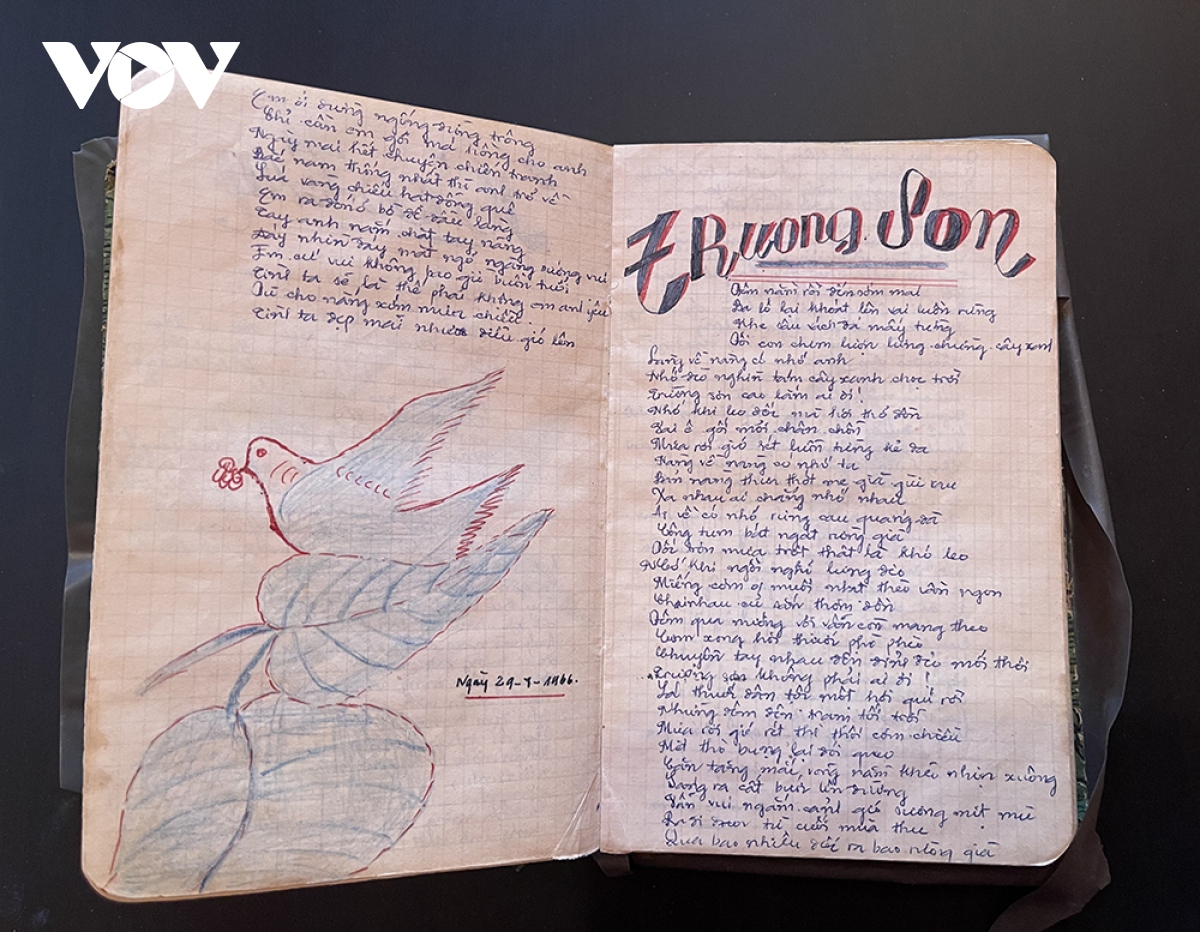 VOV
Em ơi đừng ngóng đừng trông
Chỉ cần em gối má hồng cho anh
Ngày mai hết chuyện chiến tranh
Bắc nam thống nhất thì anh trở về
Lúa vàng chiếu hạt đồng quê
Em ra đón bộ đầu làng
Tay anh nắm chặt tay nàng
Đây nhìn đây mắt ngó ngàng sướng vui
Em cứ vui không bao giờ buồn tuổi
Tình ta sẽ là thế phải không em anh yêu
Dù cho nắng xớm mưa chiều.
Tình ta đẹp mãi như diều gió lên
Ngày 29-8-1966.
TRương Sơn
Đêm nằm rồi đến sớm mai
Ba lô lại khoát lên vai luồn rừng
Khe sâu vách đá mấy từng
Đồi con chim lượn lưng chừng cây xanh
nàng về nàng có nhớ anh
Nhớ nghìn tám cây xanh chọc trời
Trường sơn cao lắm ai ơi!
Nhớ khi leo dốc mà hơi thở dồn
Vai ê gối mỏi chân chồn
Mưa rơi gió rét luồn từng kẻ da
Nàng về nàng có nhớ ta
mẹ già
Xa nhau ai chẳng nhớ nhau
về có nhớ rừng cau quang
Công tum bát ngát rừng già
Dốc trơn mưa trớt thật là khó leo
Nhớ khi ngồi nghỉ lưng đèo
Miếng cơm muối nhạt thèo ngon
Chia nhau sắn thơm dồn
Đêm qua nướng vội vẫn còn mang theo
Cơm xong hơi thuốc phì phèo
Chuyền tay nhau đến đỉnh đèo mới thôi
Trường sơn không phải ai ơi!
thuốc một hơi rồi
Những đêm đến trạm tối trời
Mưa rơi gió rét thì thôi cơm chiều
Mệt thở bụng lại đói queo
Căn tăng mái võng nằm khèo nhịn xuông
Sáng ra cất bước lên đường
Vẫn vui ngắm cảnh gió sương mịt mù
Ra đi từ cuối mùa thu
Qua bao nhiêu dốc ra bao rừng già